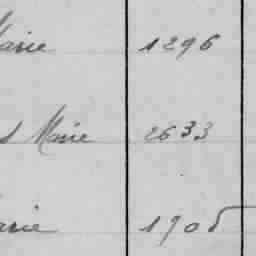 Marie 1296
Marie 2633
Marie 1905